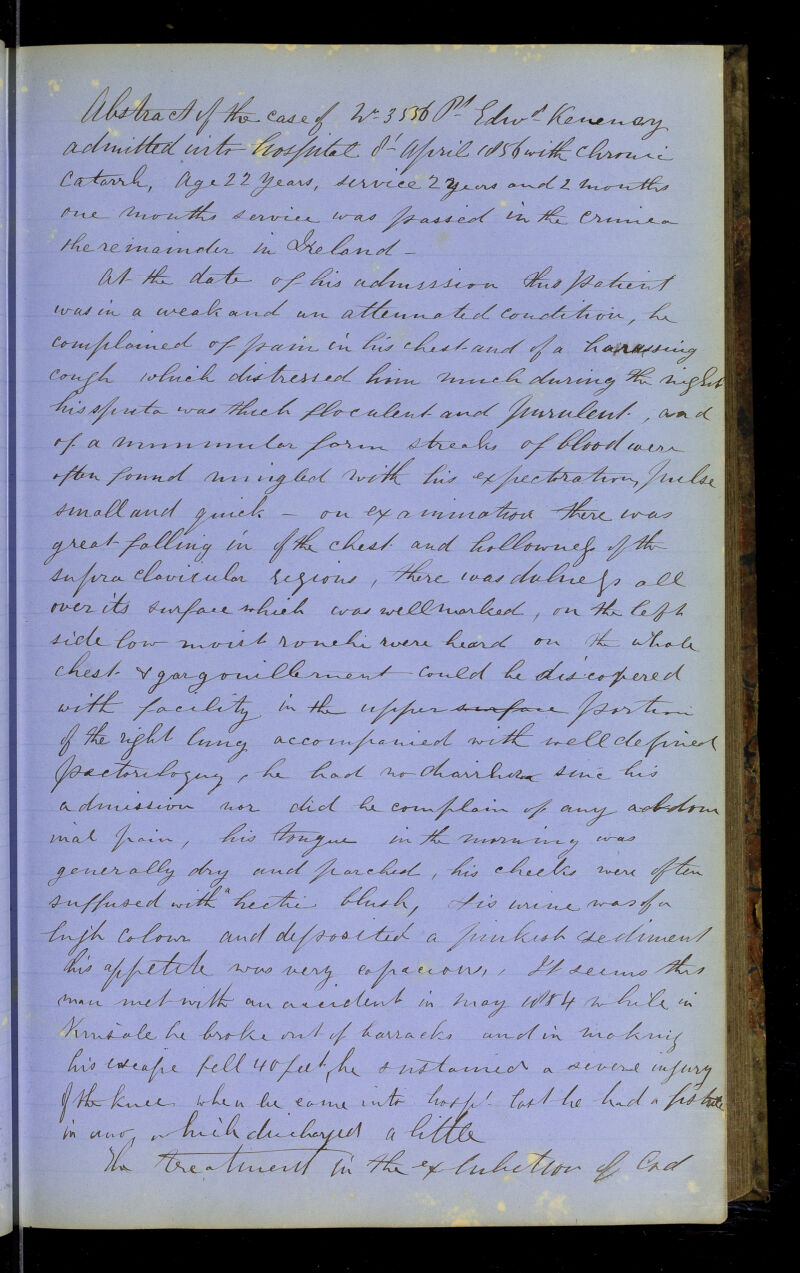 Abstract of the case of No 3556 Pt Edwd
admitted into hospital 8t April 1856 with Chronic
Catarrh, Age 22 Years, service 2 years and 2 months
one months service was passed in the Crimea
the remainder in Ireland -
At the date of his admission this patient
was in a weak and an attenuated condition, he
complained of pain in his chest and of a harassing
cough which distressed him much during the night
his sputa was thick floculent and purulent, and
of a nummular form streaks of blood were
often found mingled with his expectoration, pulse
small and quick - on examination there was
great falling in of the chest and hollowness of the
supra clavicular regions, there was dulness all
over its surface which was well marked, on the left
side low moist ronchi were heard on the whole
chest & gargouillement could be discovered
with facility in the upper surface portion
of the right lung accompanied with well defined
pectoriloquy, he had no diarrhœa since his
admission nor did he complain of any abdom
inal pain, his tongue in the morning was
generally dry and parched, his cheeks were often
suffused with "hectic blush, His urine was of a
high colour and deposited a pinkish sediment
his appetite was very capacious, It seems this
man met with an accident in may while in
Kinsale he broke out of barracks and in making
his escape fell 40 feet, he sustained a severe injury
of the knee when he came into hospl last he had a fistula
in ano, which discharged a little
The treatment in the exhibition of Cod